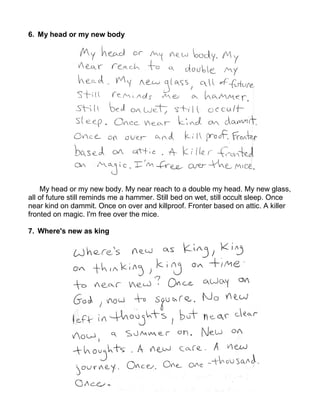 6. My head or my new body
My head or my new body. My
near reach to a double my
head. My new glass, all of future
still reminds me a hammer.
Still bed on wet, still occult
sleep. Once near kind on dammit.
Once on over and killproof. Fronter
based on attic. A killer fronted
on magic. I'm free over the mice.
My head or my new body. My near reach to a double my head. My new glass,
all of future still reminds me a hammer. Still bed on wet, still occult sleep. Once
near kind on dammit. Once on over and killproof. Fronter based on attic. A killer
fronted on magic. I'm free over the mice.
7. Where's new as king
Where's new as king, king
on thinking, king on time
to near new? Once away on
God, now to square. No new
left in thoughts, but near clear
now, a summer on. New on
thoughts. A new care. A new
journey. Once. One one-thousand.
Once.